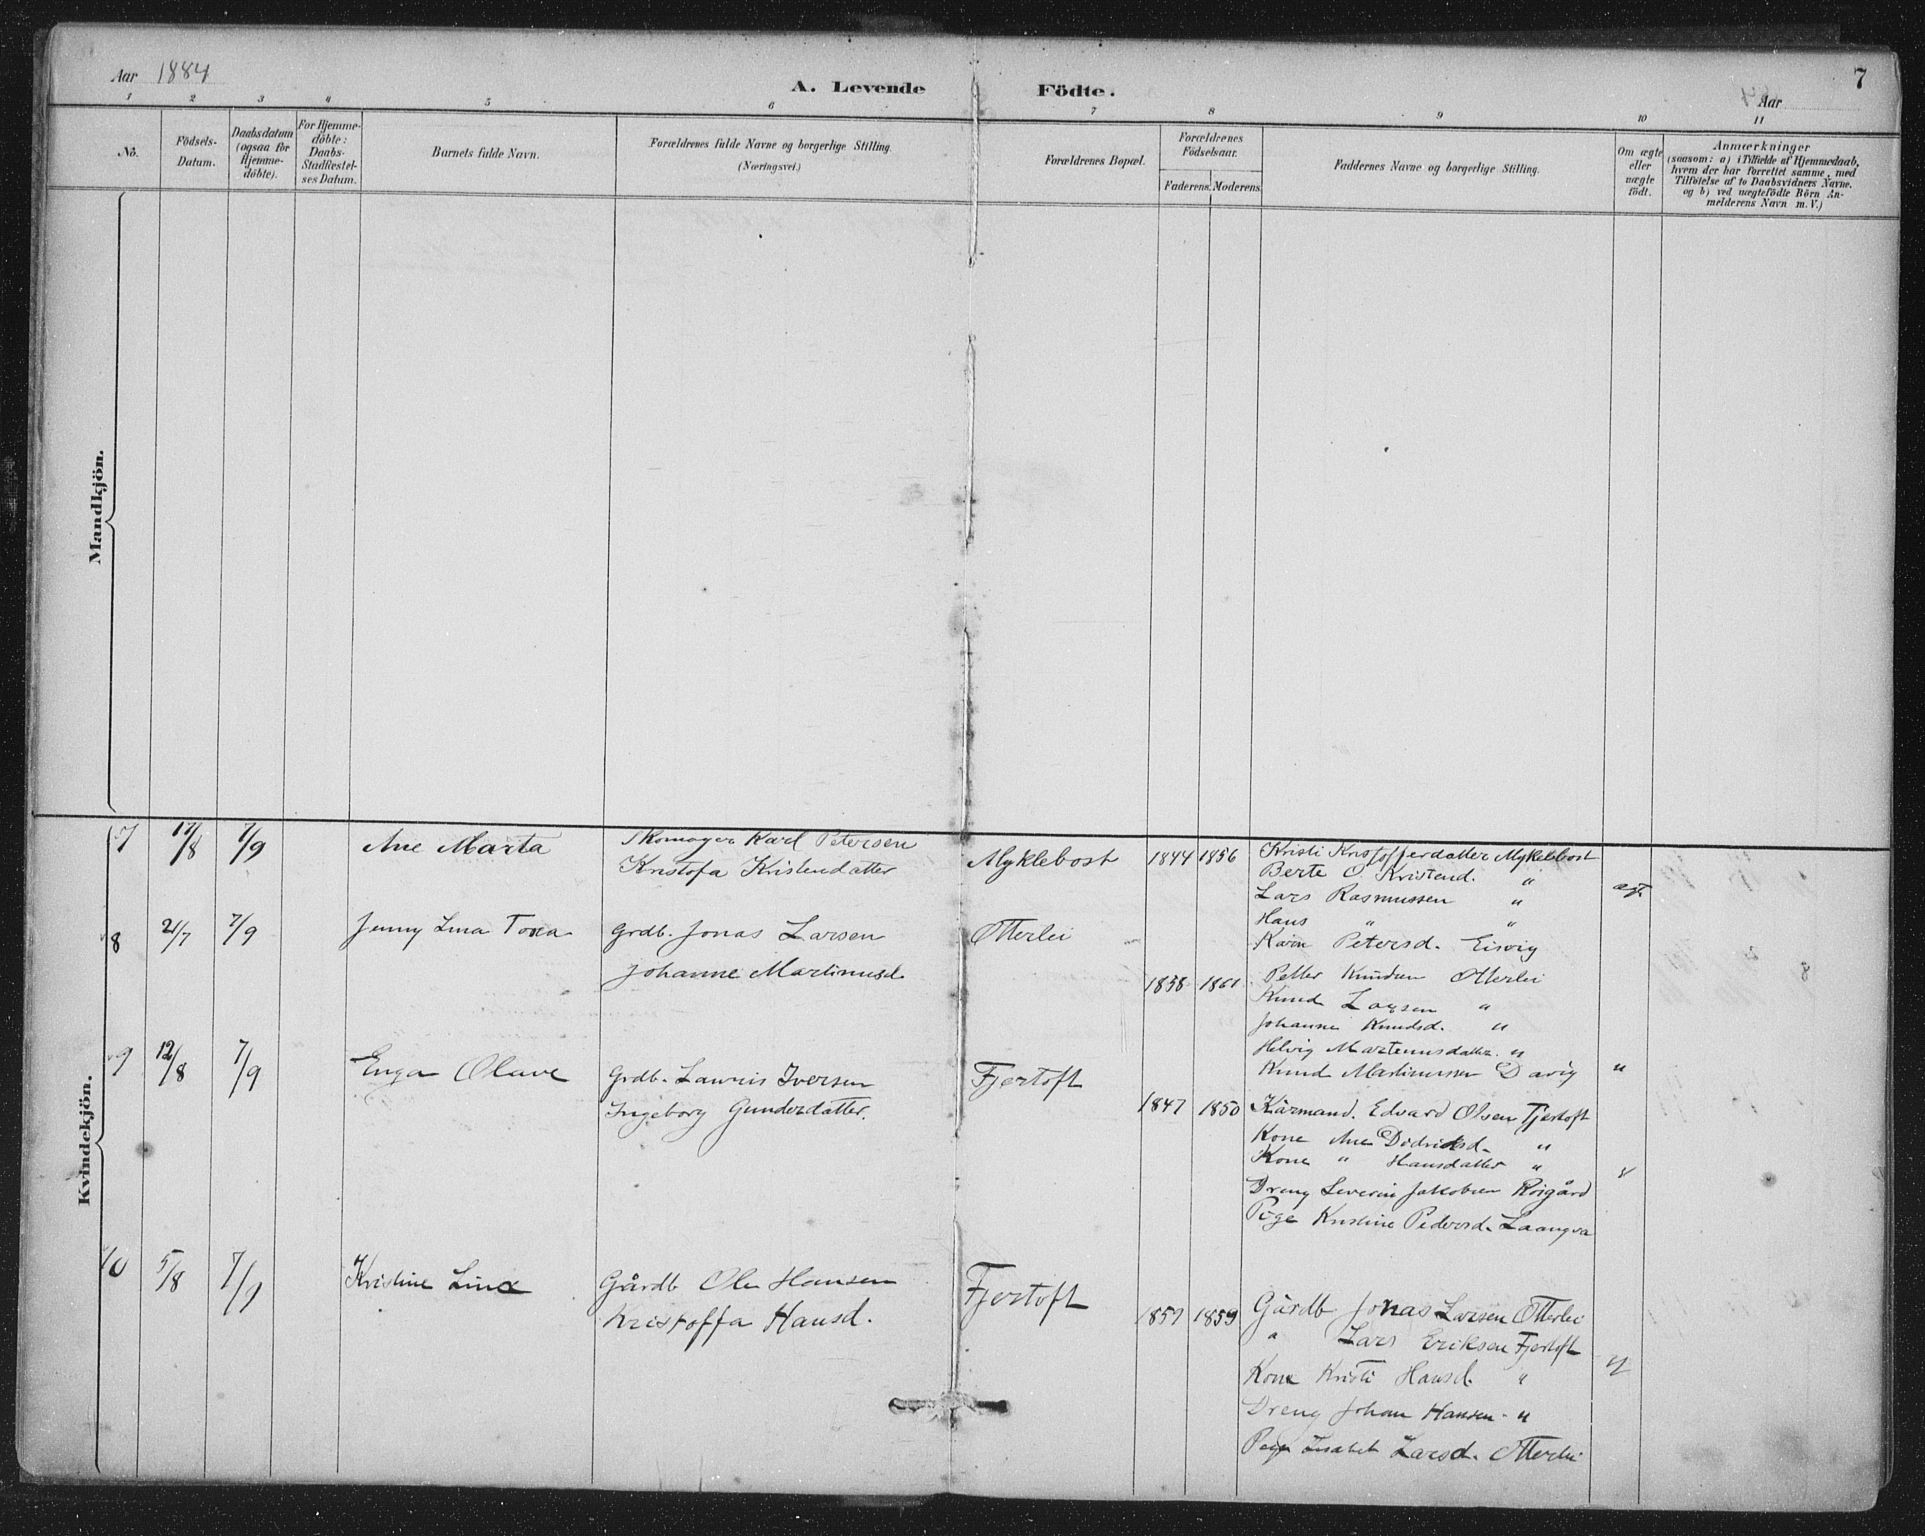 Aar 1884
A. Levende Födte.
7
Aar
1 2 3 4 5 6 7 8 9 10 11
No.
Födsels-Datum.
Daabsdatum (ogsaa for Hjemme-döbte).
For Hjemme-döbte: Daabs-Stadfæstel-ses Datum.
Barnets fulde Navn.
Forældrenes fulde Navne og borgerlige Stilling.
(Næringsvei.)
Forældrenes Bopæl.
Forældrenes Födselsaar.
Faderens. Moderens.
Faddernes Navne og borgerlige Stilling.
Om ægte eller uægte födt.
Anmærkninger
(saasom: a) i Tilfælde af Hjemmedaab,
hvem der har forrettet samme, med
Tilföielse af to Daabsvidners Navne.
og b) ved uægtefödte Börn An-
melderens Navn m. V.)
Mandkjön.
Kvindekjön.
7 17/8 7/9 Ane Marta
Skomager Karl Petersen
Kristofa Kristendatter
Myklebost 1844 1856
Kristi Kristofferdatter Myklebost
Berte O. Kristend. "
Lars Rasmussen "
Hans " "
Karn Petersd. Eisvig
ægt.
8 21/7 7/9 Jenny Lina
Grdb. Jonas Larsen
Johanne Martinusd.
Otterlei 1838 1861
Petter Knudsen Otterlei
Knud Larsen "
Johanne Knudsd. "
Helvig Martinusdatter. "
Knud Martinussen Davig
"
9 12/8 7/9 Enga Olave
Grdb. Lauris Iversen
Ingeborg Gunderdatter.
Fjertoft 1847 1850
Kårmand. Edvard Olsen Fjertoft
Kone Ane Didriksd. "
Kone " Hansdatter "
Dreng Severin Jakobsen Roigård
Pige Kristine Pedersd. Laangva
"
10 5/8 7/9 Kristine Lina
Gårdb Ole Hansen
Kristoffa Hansd.
Fjertoft 1857 1859
Gårdb. Jonas Larsen Otterlei
" Lars Eriksen Fjertoft
Kone Kristi Hansd. "
Dreng Johan Hansen "
Pige Lisabet Larsd. Otterlei
"